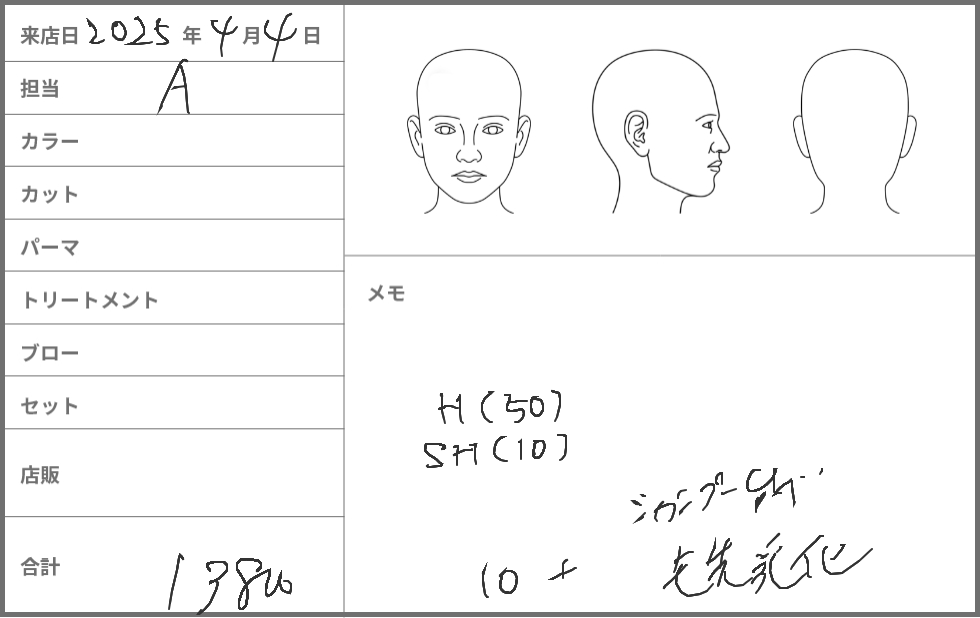 来店日 2025 年 4 月 4 日
担当 A
カラー
カット
パーマ
トリートメント
ブロー
セット
店販
合計
メモ
H (50)
SH (10)
シャンプー
10 + 毛先乳化